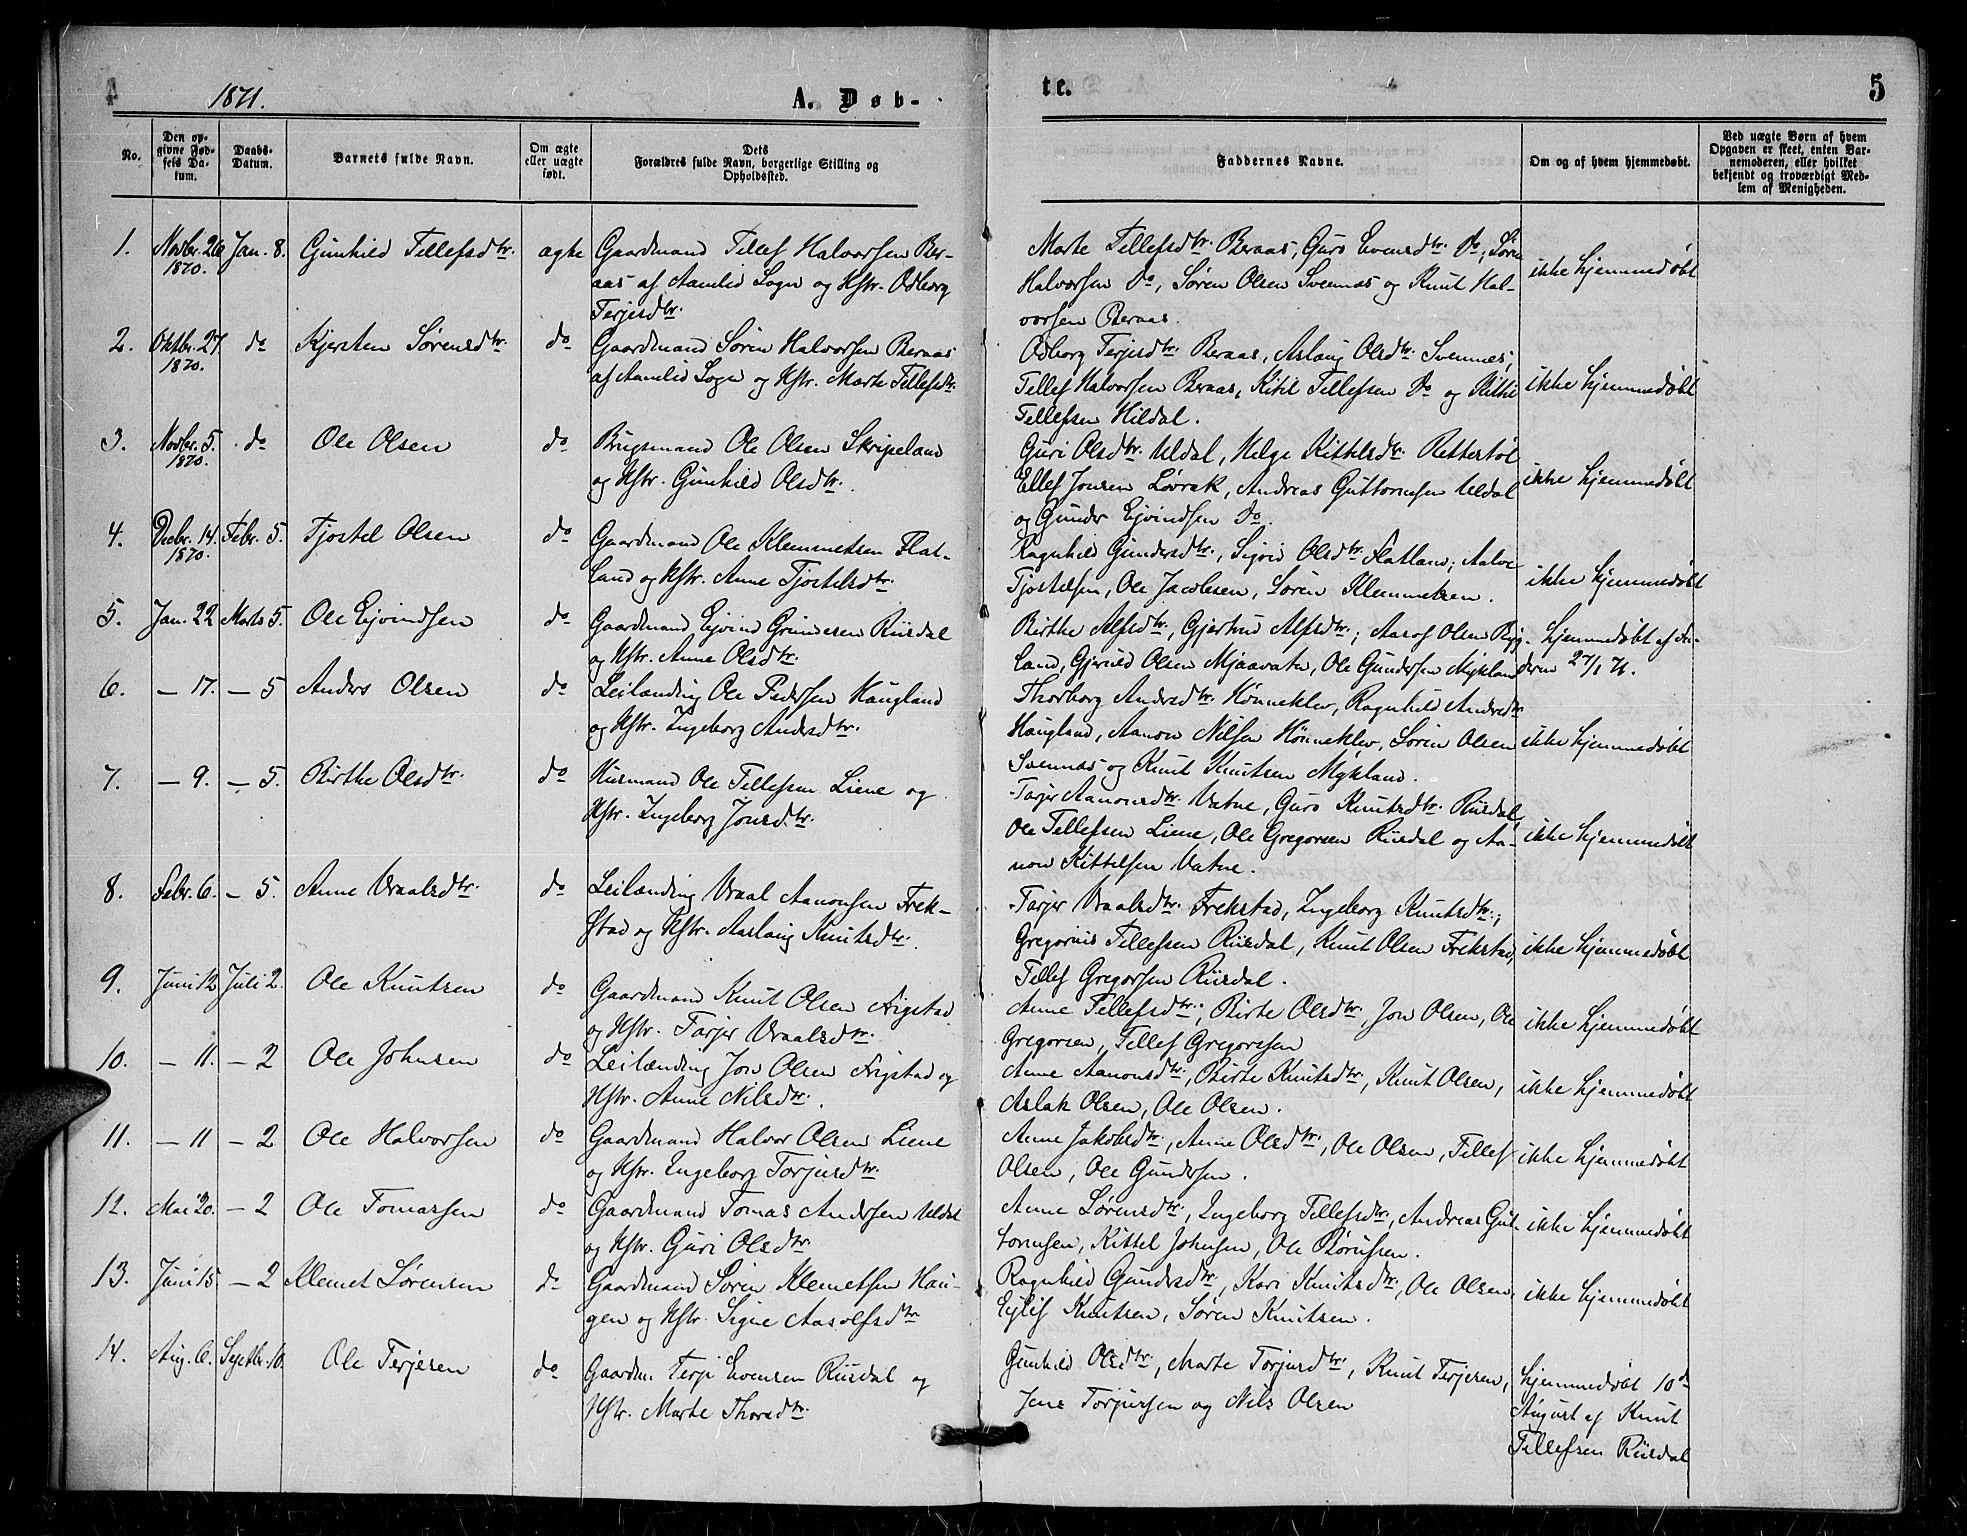 4
1871.
A. Døb-
te.
5
No.
Den op-
givne Fød-
sels Da-
tum.
Daabs-
Datum.
Barnets fulde Navn.
Om ægte
eller uægte
født.
Dets
Forældres fulde Navn, borgerlige Stilling og
Opholdssted.
Faddernes Navne.
Om og af hvem hjemmedøbt.
Ved uægte Børn af hvem
Opgaven er skeet, enten Bar-
nemoderen, eller hvilket
bekjendt og troværdigt Med-
lem af Menigheden.
1. Novbr. 26 Jan. 8. Gunhild Tellefsdtr. ægte Gaardmand Tellef Halvorsen Ber-
1870.
aas af Aamlid Sogn og Hstr. Odborg
Terjesdtr.
Marte Tellefsdtr. Beraas, Guro Evensdtr. Do, Søren
Halvorsen Do, Søren Olsen Svennas og Knut Hal-
vorsen Beraas.
ikke hjemmedøbt
2. Oktbr. 27 do Kjersten Sørensdtr. do Gaardmand Søren Halvorsen Beraas
1870.
af Aamlid Sogn og Hstr. Marte Tellefsdtr.
Odborg Terjesdtr. Beraas, Aslaug Olsdtr. Svennes,
Tellef Halvorsen Beraas, Kitil Tellefsen Do og Kittil
Tellefsen Hildal.
ikke hjemmedøbt
3. Novbr. 5. do Ole Olsen do Brugsmand Ole Olsen Skripeland
1870.
og Hstr. Gunhild Olsdtr.
Guri Olsdtr. Uldal, Helge Kittelsdtr. Rettertøl
Ellef Jonsen Løvrak, Andreas Guttormsen Uldal
og Gunder Ejvindsen Do.
ikke hjemmedøbt
4. Decbr. 14. Febr. 5. Tjostel Olsen do Gaardmand Ole Klemmetsen Flat-
1870.
land og Hstr. Anne Tjostelsdtr.
Ragnhild Gundersdtr., Sigrid Olsdtr. Flatland; Aalve
Tjostelsen, Ole Jacobsen, Søren Klemmetsen.
ikke hjemmedøbt
5. Jan. 22 Marts 5. Ole Ejvindsen do Gaardmand Ejvind Gundersen Riisdal
og Hstr. Anne Olsdtr.
Birthe Alfsdtr., Gjertrud Alfsdtr.; Aasof Olsen Rig-
land, Gjeruld Olsen Mjaavatn, Ole Gundersen Mykland
hjemmedøbt af Fa-
deren 27/1 71.
6. — 17. — 5 Anders Olsen do Leilænding Ole Pedersen Haugland
og Hstr. Ingeborg Andersdtr.
Thorborg Andersdtr. Hønneklev, Ragnhild Andersdtr.
Haugland, Aanon Nilsen Hønneklev, Søren Olsen
Svennas og Knut Knutsen Mykland.
ikke hjemmedøbt
7. — 9. — 5. Birthe Olsdtr. do Husmand Ole Tellefsen Liene og
Hstr. Ingeborg Jonsdtr.
Tarjer Aanonsdtr. Vatne, Guro Knutsdtr. Riisdal,
Ole Tellefsen Liene, Ole Gregorsen Riisdal og Aa-
non Kittelsen Vatne.
ikke hjemmedøbt
8. Febr. 6. — 5. Anne Vraalsdtr. do Leilænding Vraal Aanonsen Frek-
stad og Hstr. Aaslaug Knutsdtr.
Tarjer Vraalsdtr. Frekstad, Ingeborg Knutsdtr.;
Gregorius Tellefsen Riisdal, Knut Olsen Frekstad,
Tellef Gregorsen Riisdal.
ikke hjemmedøbt
9. Juni 12 Juli 2. Ole Knutsen do Gaardmand Knut Olsen Frigstad
og Hstr. Tarjer Vraalsdtr.
Anne Tellefsdtr.; Birte Olsdtr., Jon Olsen, Ole
Gregorsen, Tellef Gregorsen
ikke hjemmedøbt
10. — 11. — 2 Ole Johnsen do Leilænding Jon Olsen Frigstad og
Hstr. Anne Nilsdtr.
Anne Aanonsdtr., Birte Knutsdtr., Knut Olsen,
Aslak Olsen, Ole Olsen.
ikke hjemmedøbt
11. — 11 — 2 Ole Halvorsen do Gaardmand Halvor Olsen Liene
og Hstr. Ingeborg Torjusdtr.
Anne Jakobsdtr., Anne Olsdtr., Ole Olsen, Tellef
Olsen, Ole Gundersen.
ikke hjemmedøbt
12. Mai 20. — 2 Ole Tomassen do Gaardmand Tomas Andersen Uldal
og Hstr. Guri Olsdtr.
Anne Sørensdtr., Ingeborg Tellefsdtr., Andreas Gut-
tormsen, Kittel Johnsen, Ole Børufsen.
ikke hjemmedøbt
13. Juni 15 — 2 Klemet Sørensen do Gaardmand Søren Klemetsen Hau-
gen og Hstr. Signe Aasolfsdtr
Ragnhild Gundersdtr., Kari Knutsdtr., Ole Olsen
Ejlif Knutsen, Søren Knutsen.
ikke hjemmedøbt
14. Aug. 6. Septbr. 10. Ole Terjesen do Gaardm. Terje Evensen Riisdal og
Hstr. Marte Thorsdtr.
Gunhild Olsdtr., Marte Torjusdtr., Knut Terjesen,
Jens Torjussen og Nils Olsen
hjemmedøbt 10de
August af Knut
Tellefsen Riisdal